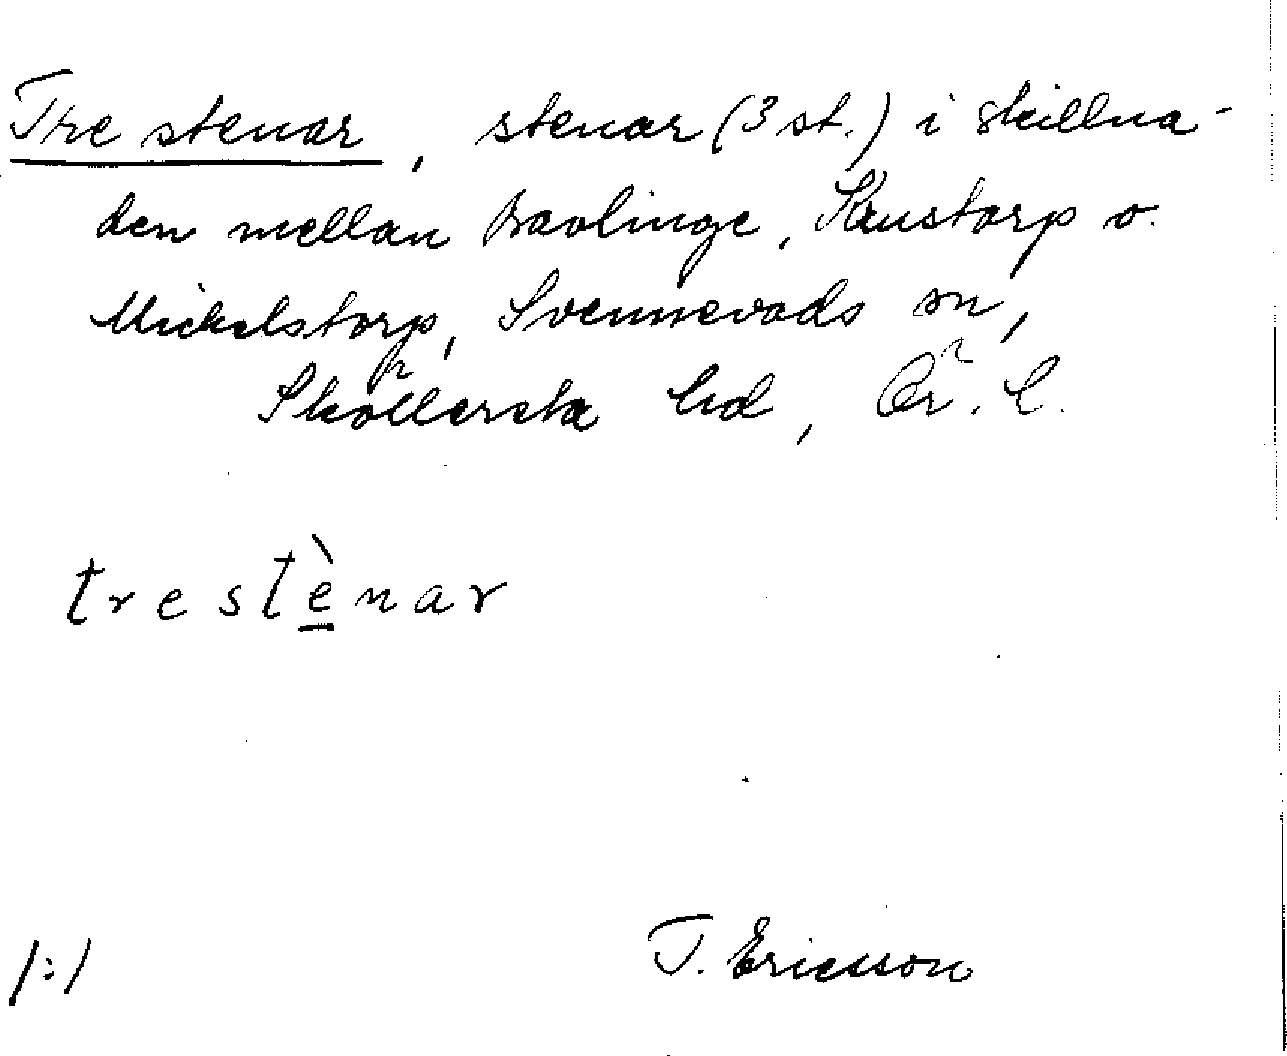 Tre stenar, stenar (3 st.) i skillna-
den mellan Bavlinge, Krustorp o.
Mickelstorp, Svennevads sn,
Sköllersta hd, Ör. l.
trestènar
/:/
T. Ericsson